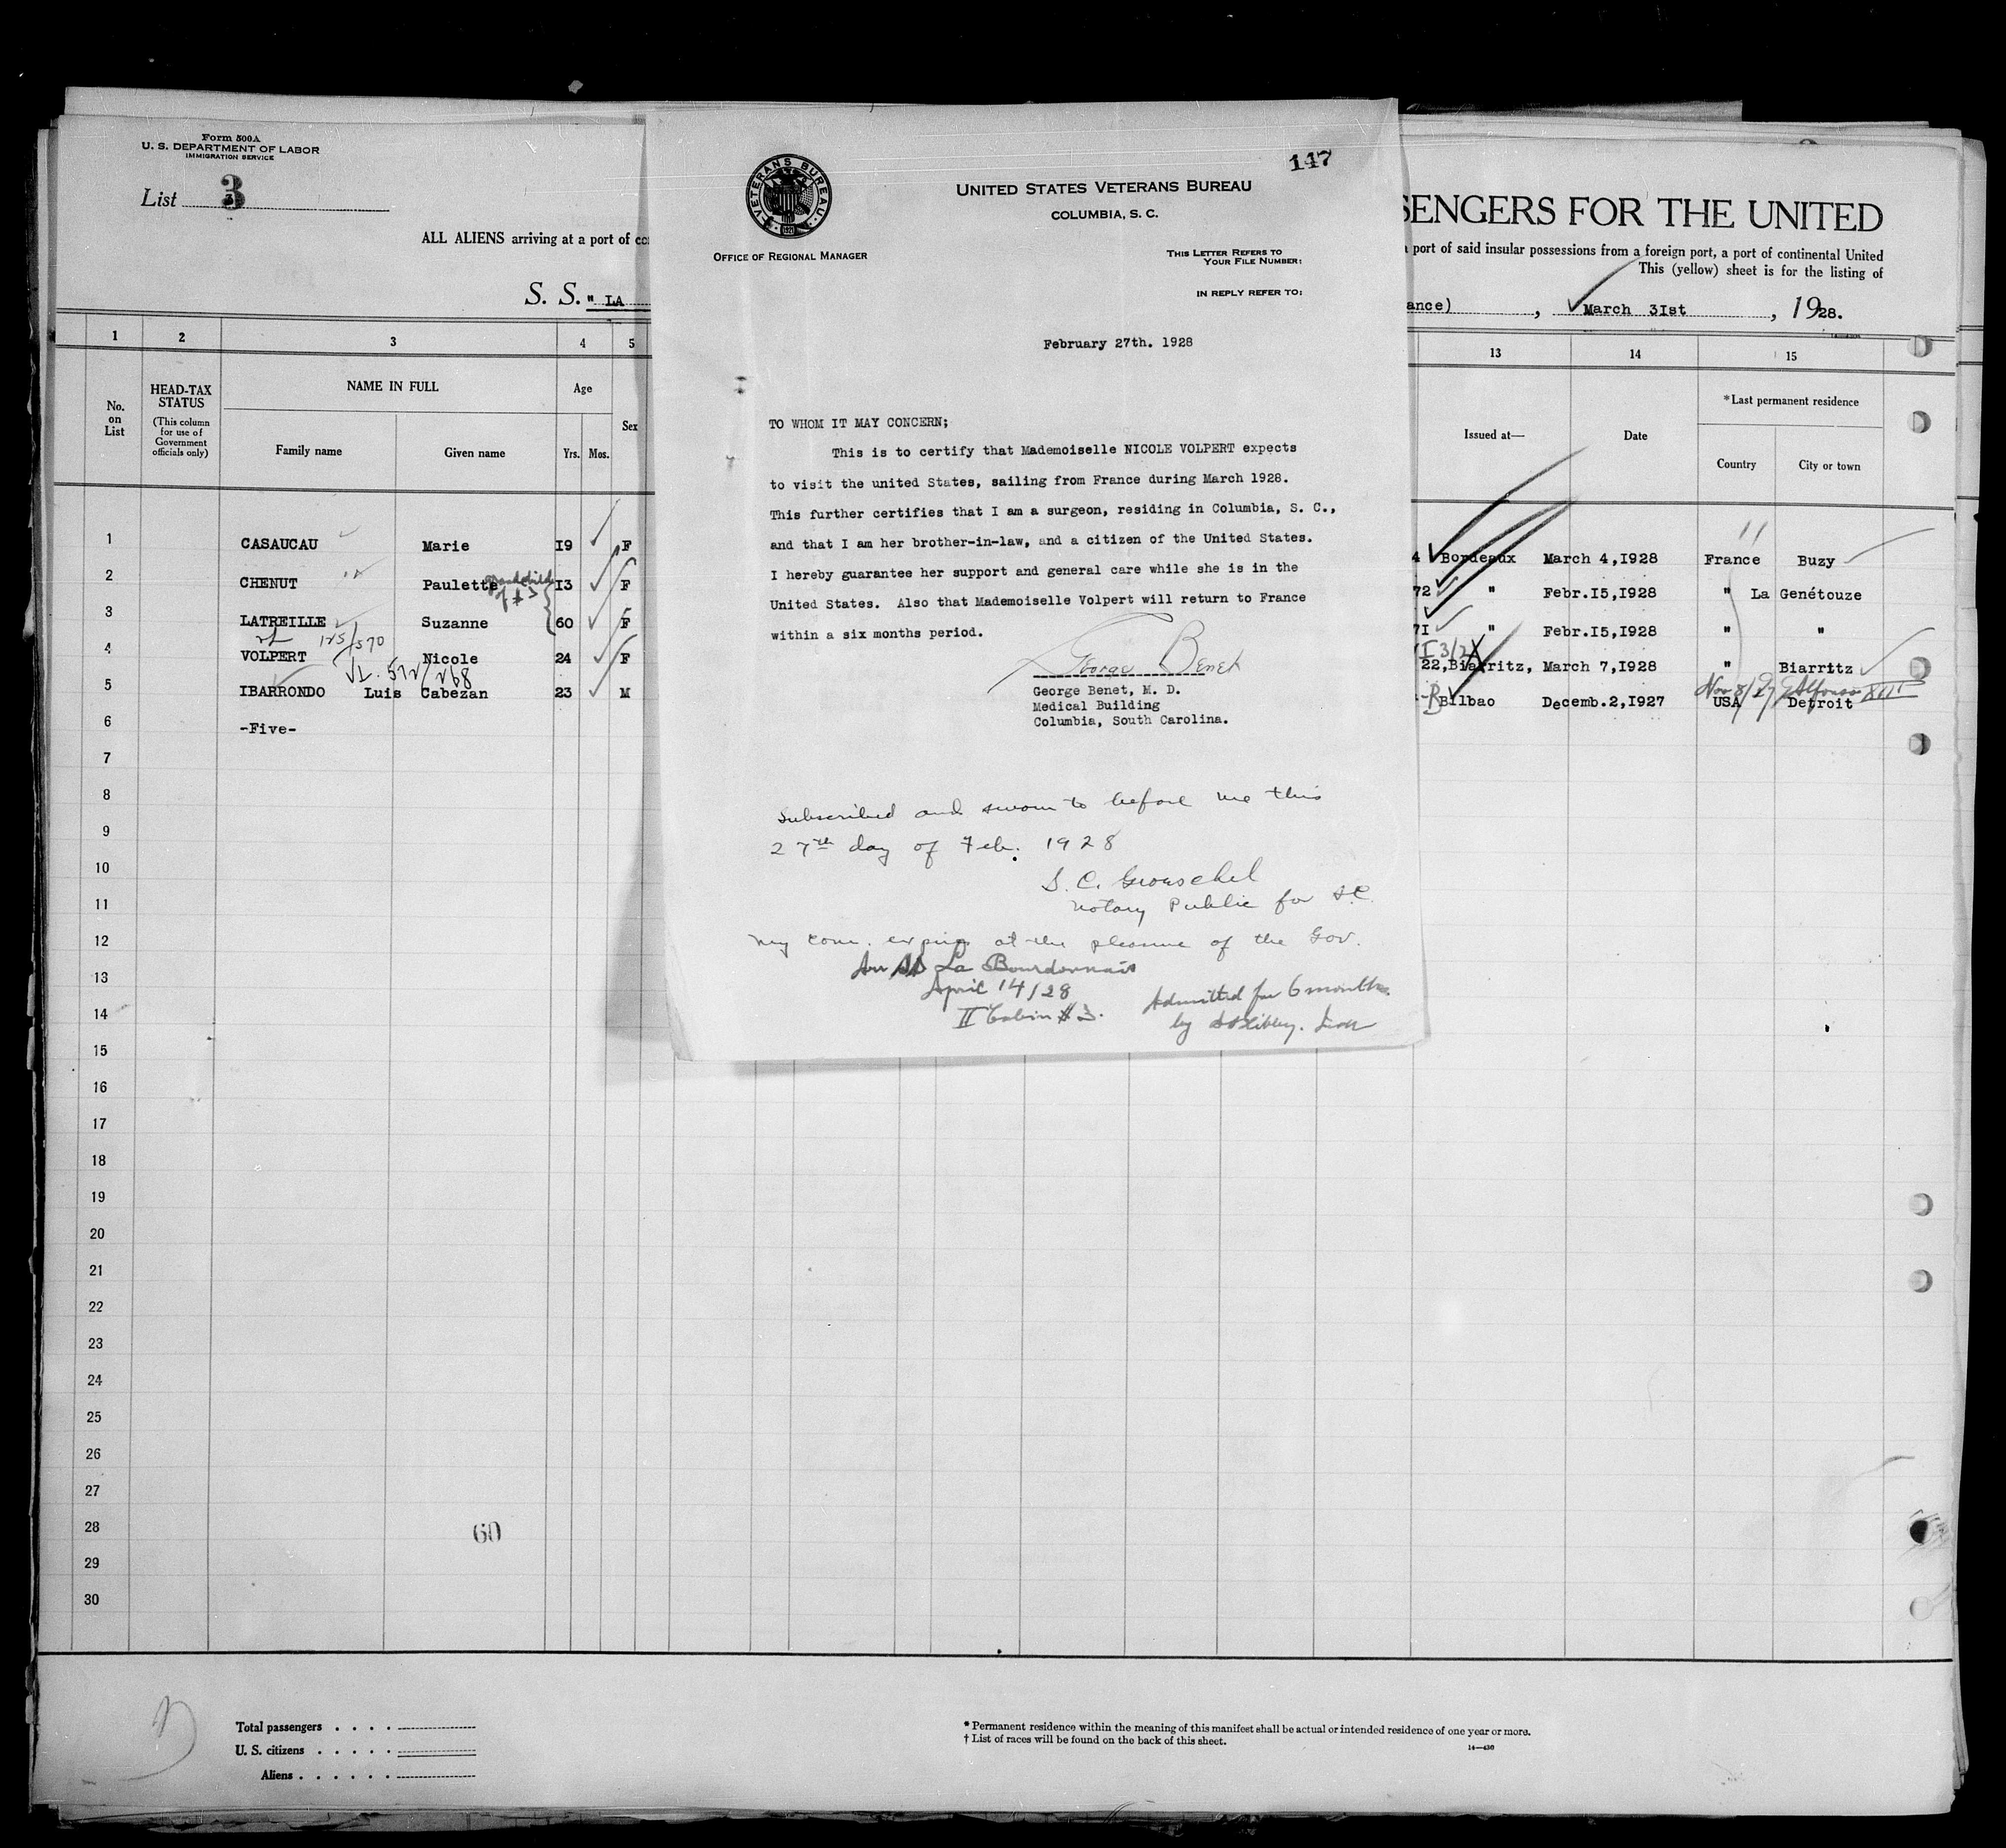 Form 500A
U. S. DEPARTMENT OF LABOR
IMMIGRATION SERVICE
List 3
ALL ALIENS arriving at a port of co
S. S. " LA
1 2 3 4 5
No. on List
HEAD-TAX STATUS
(This column for use of Government officials only)
NAME IN FULL
Family name Given name
Age
Yrs. Mos.
Sex
1 CASAUCAU Marie I9 F
2 CHENUT Paulette grandchild of #3 I3 F
3 LATREILLE Suzanne 60 F
125/570
4 VOLPERT Nicole 24 F
572/268
5 IBARRONDO Luis Cabezan 23 M
6 -Five-
7
8
9
10
11
12
13
14
15
16
17
18
19
20
21
22
23
24
25
26
27
28
29
30
60
Total passengers . . . .
U. S. citizens . . . . .
Aliens . . . . . .
147
VETERANS BUREAU
1921
UNITED STATES VETERANS BUREAU
COLUMBIA, S. C.
OFFICE OF REGIONAL MANAGER
THIS LETTER REFERS TO
YOUR FILE NUMBER:
IN REPLY REFER TO:
February 27th. 1928
TO WHOM IT MAY CONCERN;
This is to certify that Mademoiselle NICOLE VOLPERT expects
to visit the united States, sailing from France during March 1928.
This further certifies that I am a surgeon, residing in Columbia, S. C.,
and that I am her brother-in-law, and a citizen of the United States.
I hereby guarantee her support and general care while she is in the
United States. Also that Mademoiselle Volpert will return to France
within a six months period.
George Benet
George Benet, M. D.
Medical Building
Columbia, South Carolina.
Subscribed and sworn to before me this
27th day of Feb. 1928
S. C. Groeschel
Notary Public for S.C.
My com. expires at the pleasure of the Gov.
Arr SS La Bourdonnais
April 14/28
II Cabin #3.
Admitted for 6 months
by
SENGERS FOR THE UNITED
a port of said insular possessions from a foreign port, a port of continental United
This (yellow) sheet is for the listing of
ance) , March 3Ist , 1928.
13 14 15
Issued at—
Date
*Last permanent residence
Country City or town
4 Bordeaux March 4,I928 France Buzy
72 " Febr.I5,I928 " La Genétouze
7I " Febr.I5,I928 " "
22,Biarritz, March 7,I928 " Biarritz
Nov 8/27 Alfonso XIII
Bilbao Decemb.2,I927 USA Detroit
* Permanent residence within the meaning of this manifest shall be actual or intended residence of one year or more.
† List of races will be found on the back of this sheet.
14—430